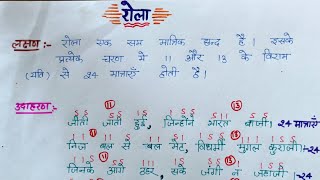 रोला
लक्षण:- रोला एक सम मात्रिक छन्द है। इसके
प्रत्येक चरण में 11 और 13 के विराम
(यति) से 24 मात्राएँ होती है।
उदाहरण:-
11 13
जीती जाती हुई, जिन्होंने भारत बाजी। -24 मात्राएँ
11 13
निज बल से बल मेट, विधर्मी मुगल कुराजी। -24
11 13
जिनके आगे ठहर, सके जंगी न जहाजी।